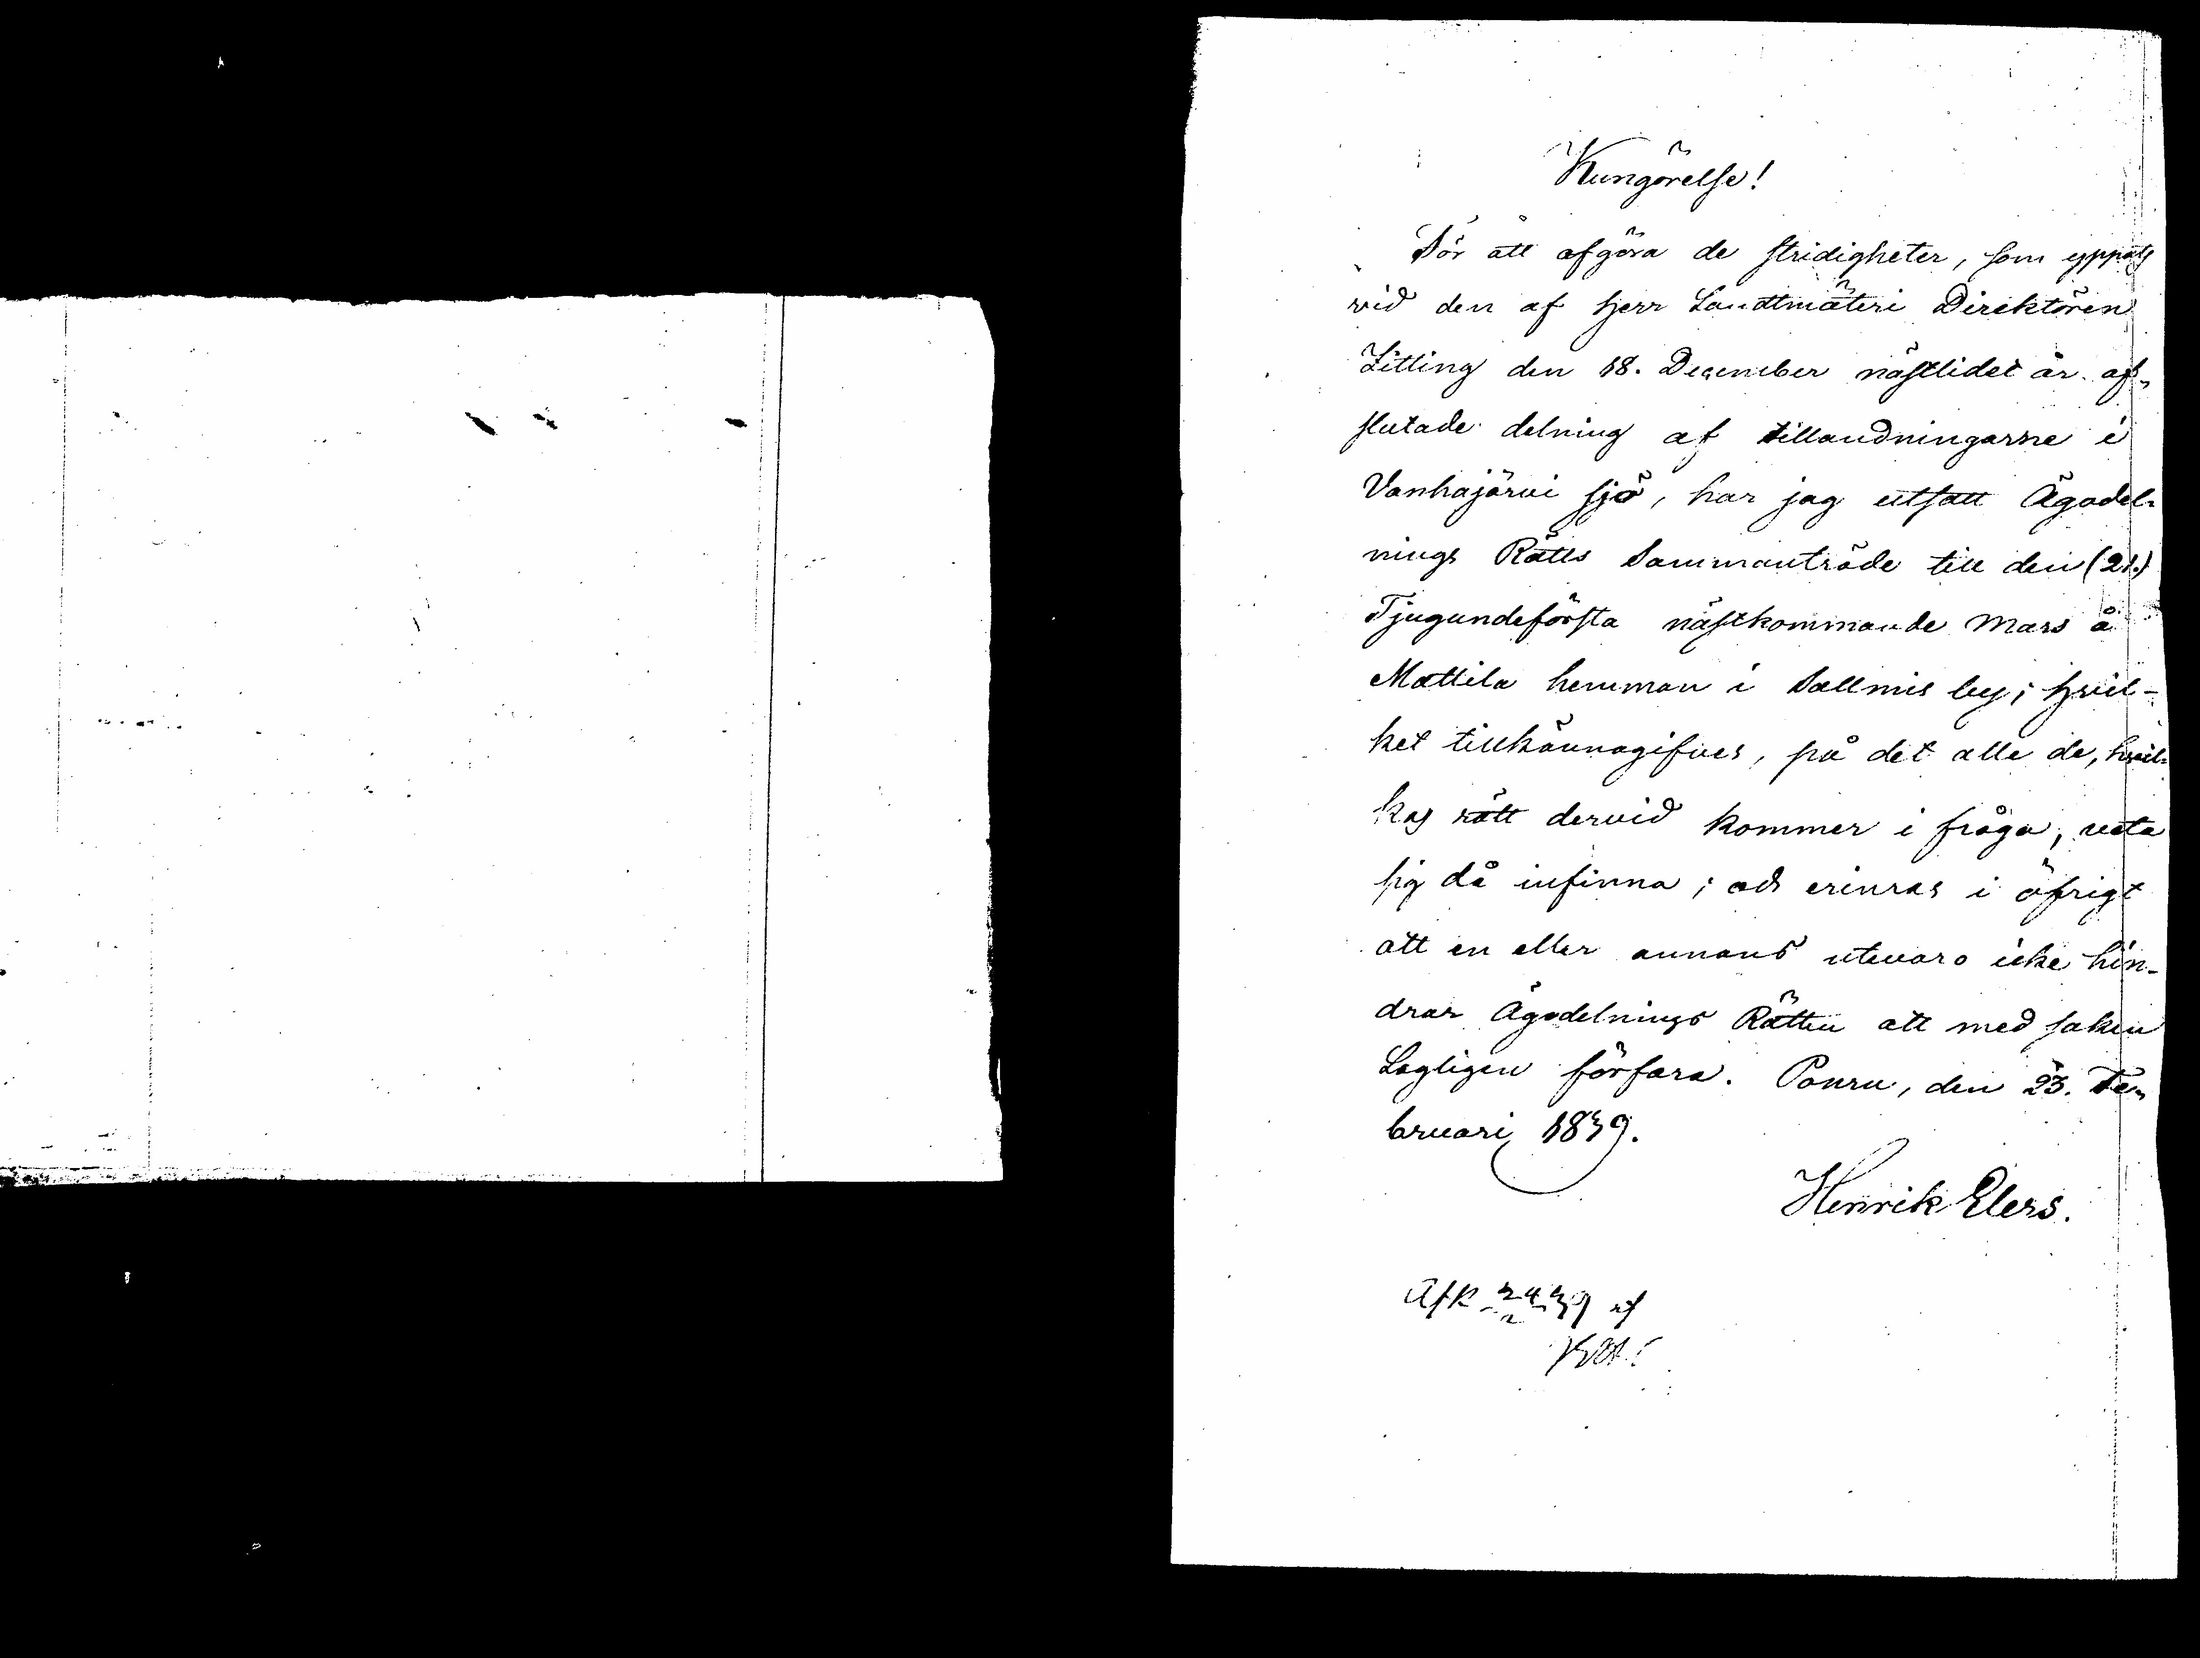 Kungörelse!
För att afgöra de stridigheter, som yppats
vid den af Herr Landtmäteri Direktören
Litting den 18. December nästlidet år af-
slutade delning af tillandningarne i
Vanhajärvi sjö, har jag utsatt Ägodel-
nings Rätts Sammanträde till den (21.)
Tjugundeförsta nästkommande Mars å
Mattila hemman i Sallmis by; hvil-
ket tillkännagifves, på det alle de, hvil-
kas rätt dervid kommer i fråga, veta
sig då infinna; och erinras i öfrigt
att en eller annans utevaro icke hin-
drar Ägodelnings Rätten att med saken
Lagligen förfara. Ponru, den 23. Fe-
bruari 1839.
Henrik Elers.